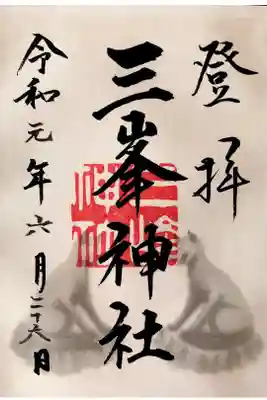 登拝
三峯神社
令和元年六月二十六日